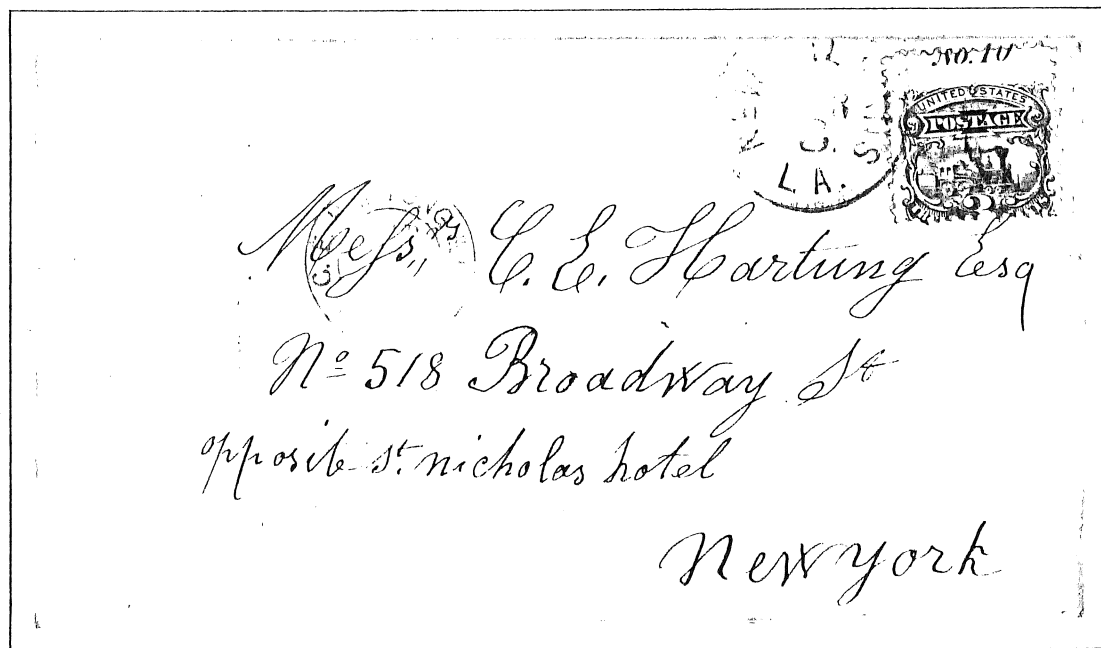 No. 10
UNITED STATES
POSTAGE
LA.
Mess,, C. E. Hartung Esq
No 518 Broadway St
opposite st. nicholas hotel
New York